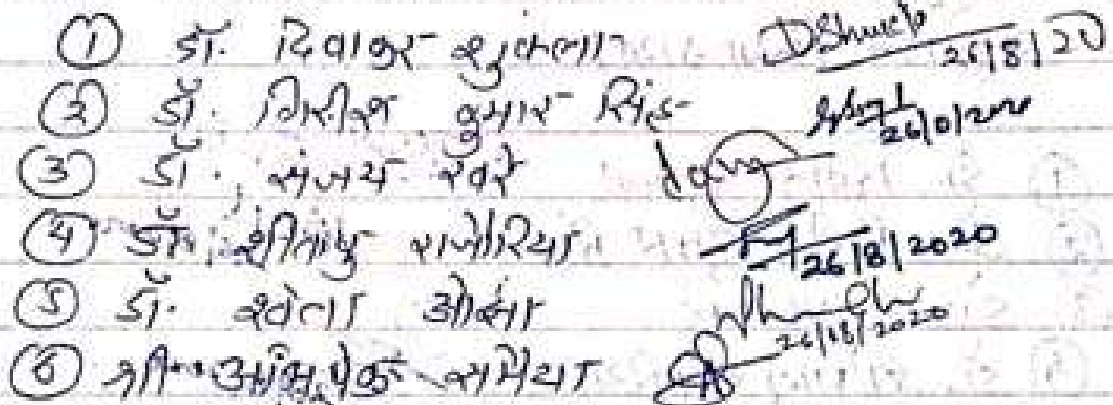 ① डॉ. दिवाकर शुक्ला DShukla 26/8/20
② डॉ. गिरीश कुमार सिंह 26/8/2020
③ डॉ. संजय खरे
④ डॉ. शीतांशु राजोरिया 26/8/2020
⑤ डॉ. श्वेता ओझा 26/08/2020
⑥ श्री अभिषेक समैया